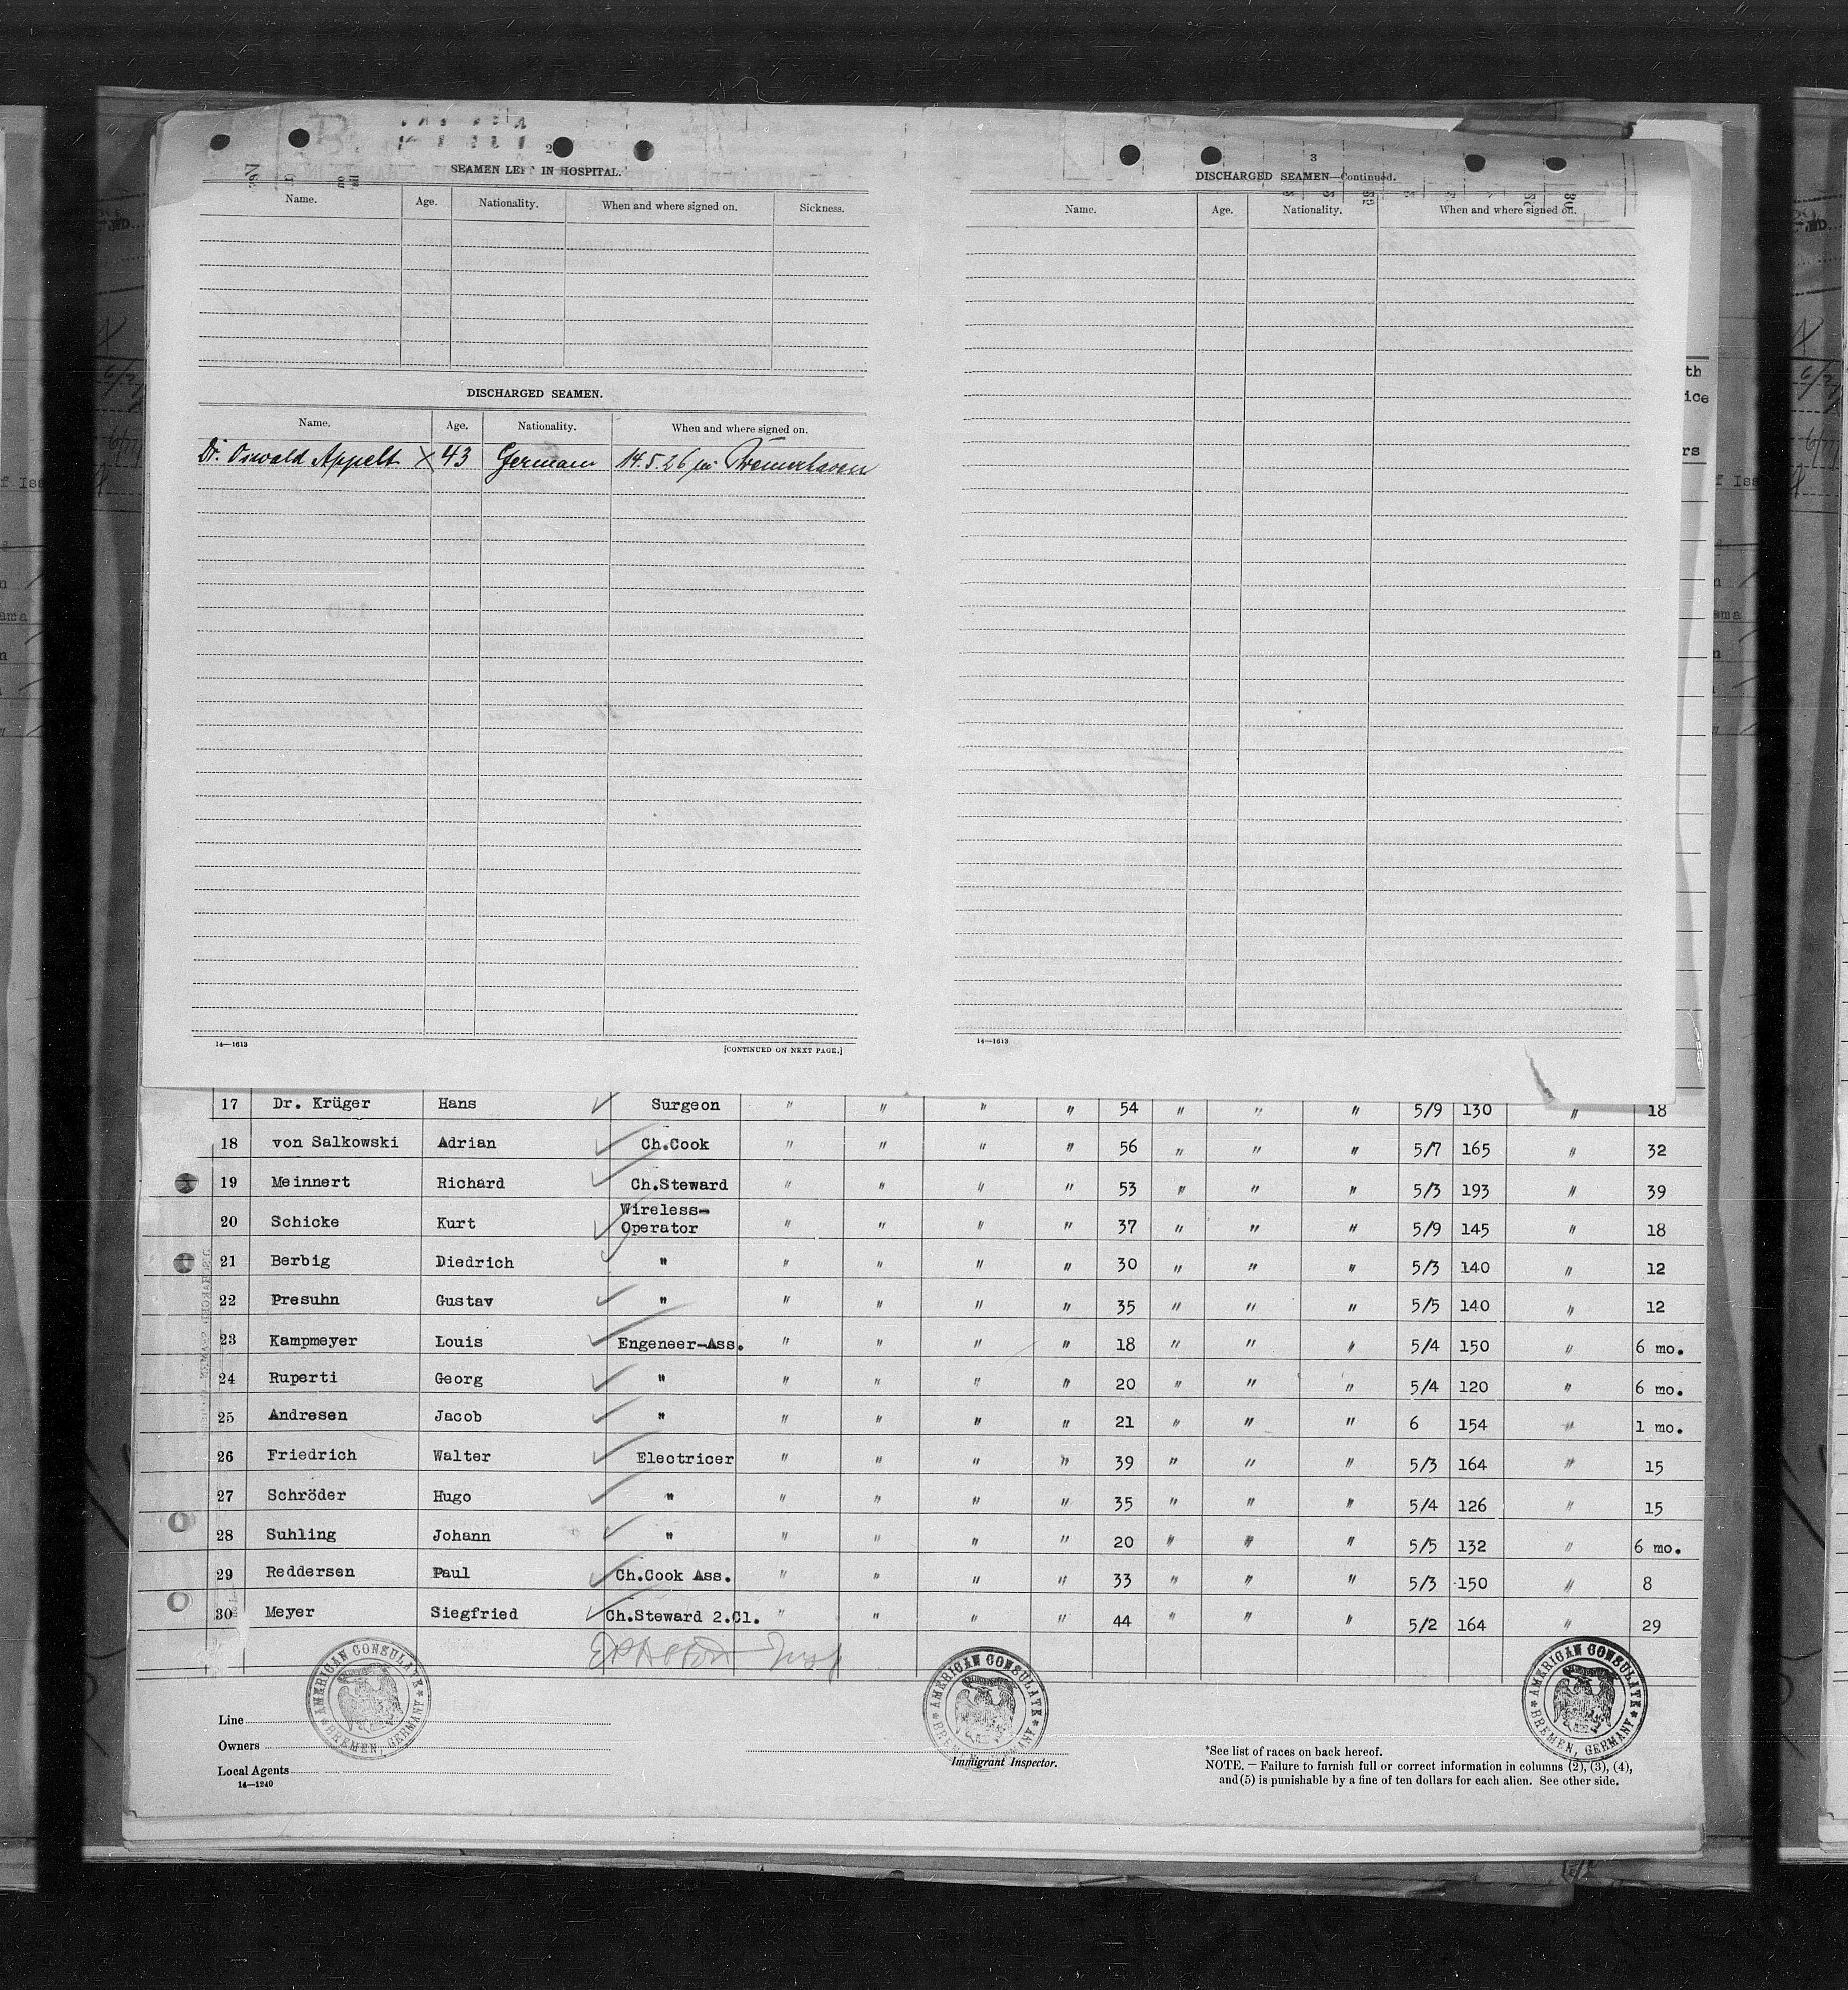 2
SEAMEN LEFT IN HOSPITAL.
Name. Age. Nationality. When and where signed on. Sickness.
DISCHARGED SEAMEN.
Name. Age. Nationality. When and where signed on.
Dr. Oswald Appelt × 43 German 14.5.26 in Bremerhaven
14—1613 [CONTINUED ON NEXT PAGE.]
3
DISCHARGED SEAMEN—Continued.
Name. Age. Nationality. When and where signed on.
14—1613
17 Dr. Krüger Hans ✓ Surgeon " " " " 54 " " " 5/9 130 " 18
18 von Salkowski Adrian ✓ Ch.Cook " " " " 56 " " " 5/7 165 " 32
19 Meinnert Richard ✓ Ch.Steward " " " " 53 " " " 5/3 193 " 39
20 Schicke Kurt ✓ Wireless-
Operator " " " " 37 " " " 5/9 145 " 18
21 Berbig Diedrich ✓ " " " " " 30 " " " 5/3 140 " 12
22 Presuhn Gustav ✓ " " " " " 35 " " " 5/5 140 " 12
23 Kampmeyer Louis ✓ Engeneer-Ass. " " " " 18 " " " 5/4 150 " 6 mo.
24 Ruperti Georg ✓ " " " " " 20 " " " 5/4 120 " 6 mo.
25 Andresen Jacob ✓ " " " " " 21 " " " 6 154 " 1 mo.
26 Friedrich Walter ✓ Electricer " " " " 39 " " " 5/3 164 " 15
27 Schröder Hugo ✓ " " " " " 35 " " " 5/4 126 " 15
28 Suhling Johann ✓ " " " " " 20 " " " 5/5 132 " 6 mo.
29 Reddersen Paul ✓ Ch.Cook Ass. " " " " 33 " " " 5/3 150 " 8
30 Meyer Siegfried ✓ Ch.Steward 2.Cl. " " " " 44 " " " 5/2 164 " 29
AMERICAN CONSULATE BREMEN, GERMANY
AMERICAN CONSULATE BREMEN, GERMANY
AMERICAN CONSULATE BREMEN, GERMANY
Line
Owners
Local Agents
14—1240
Immigrant Inspector.
*See list of races on back hereof.
NOTE.— Failure to furnish full or correct information in columns (2), (3), (4),
and (5) is punishable by a fine of ten dollars for each alien. See other side.